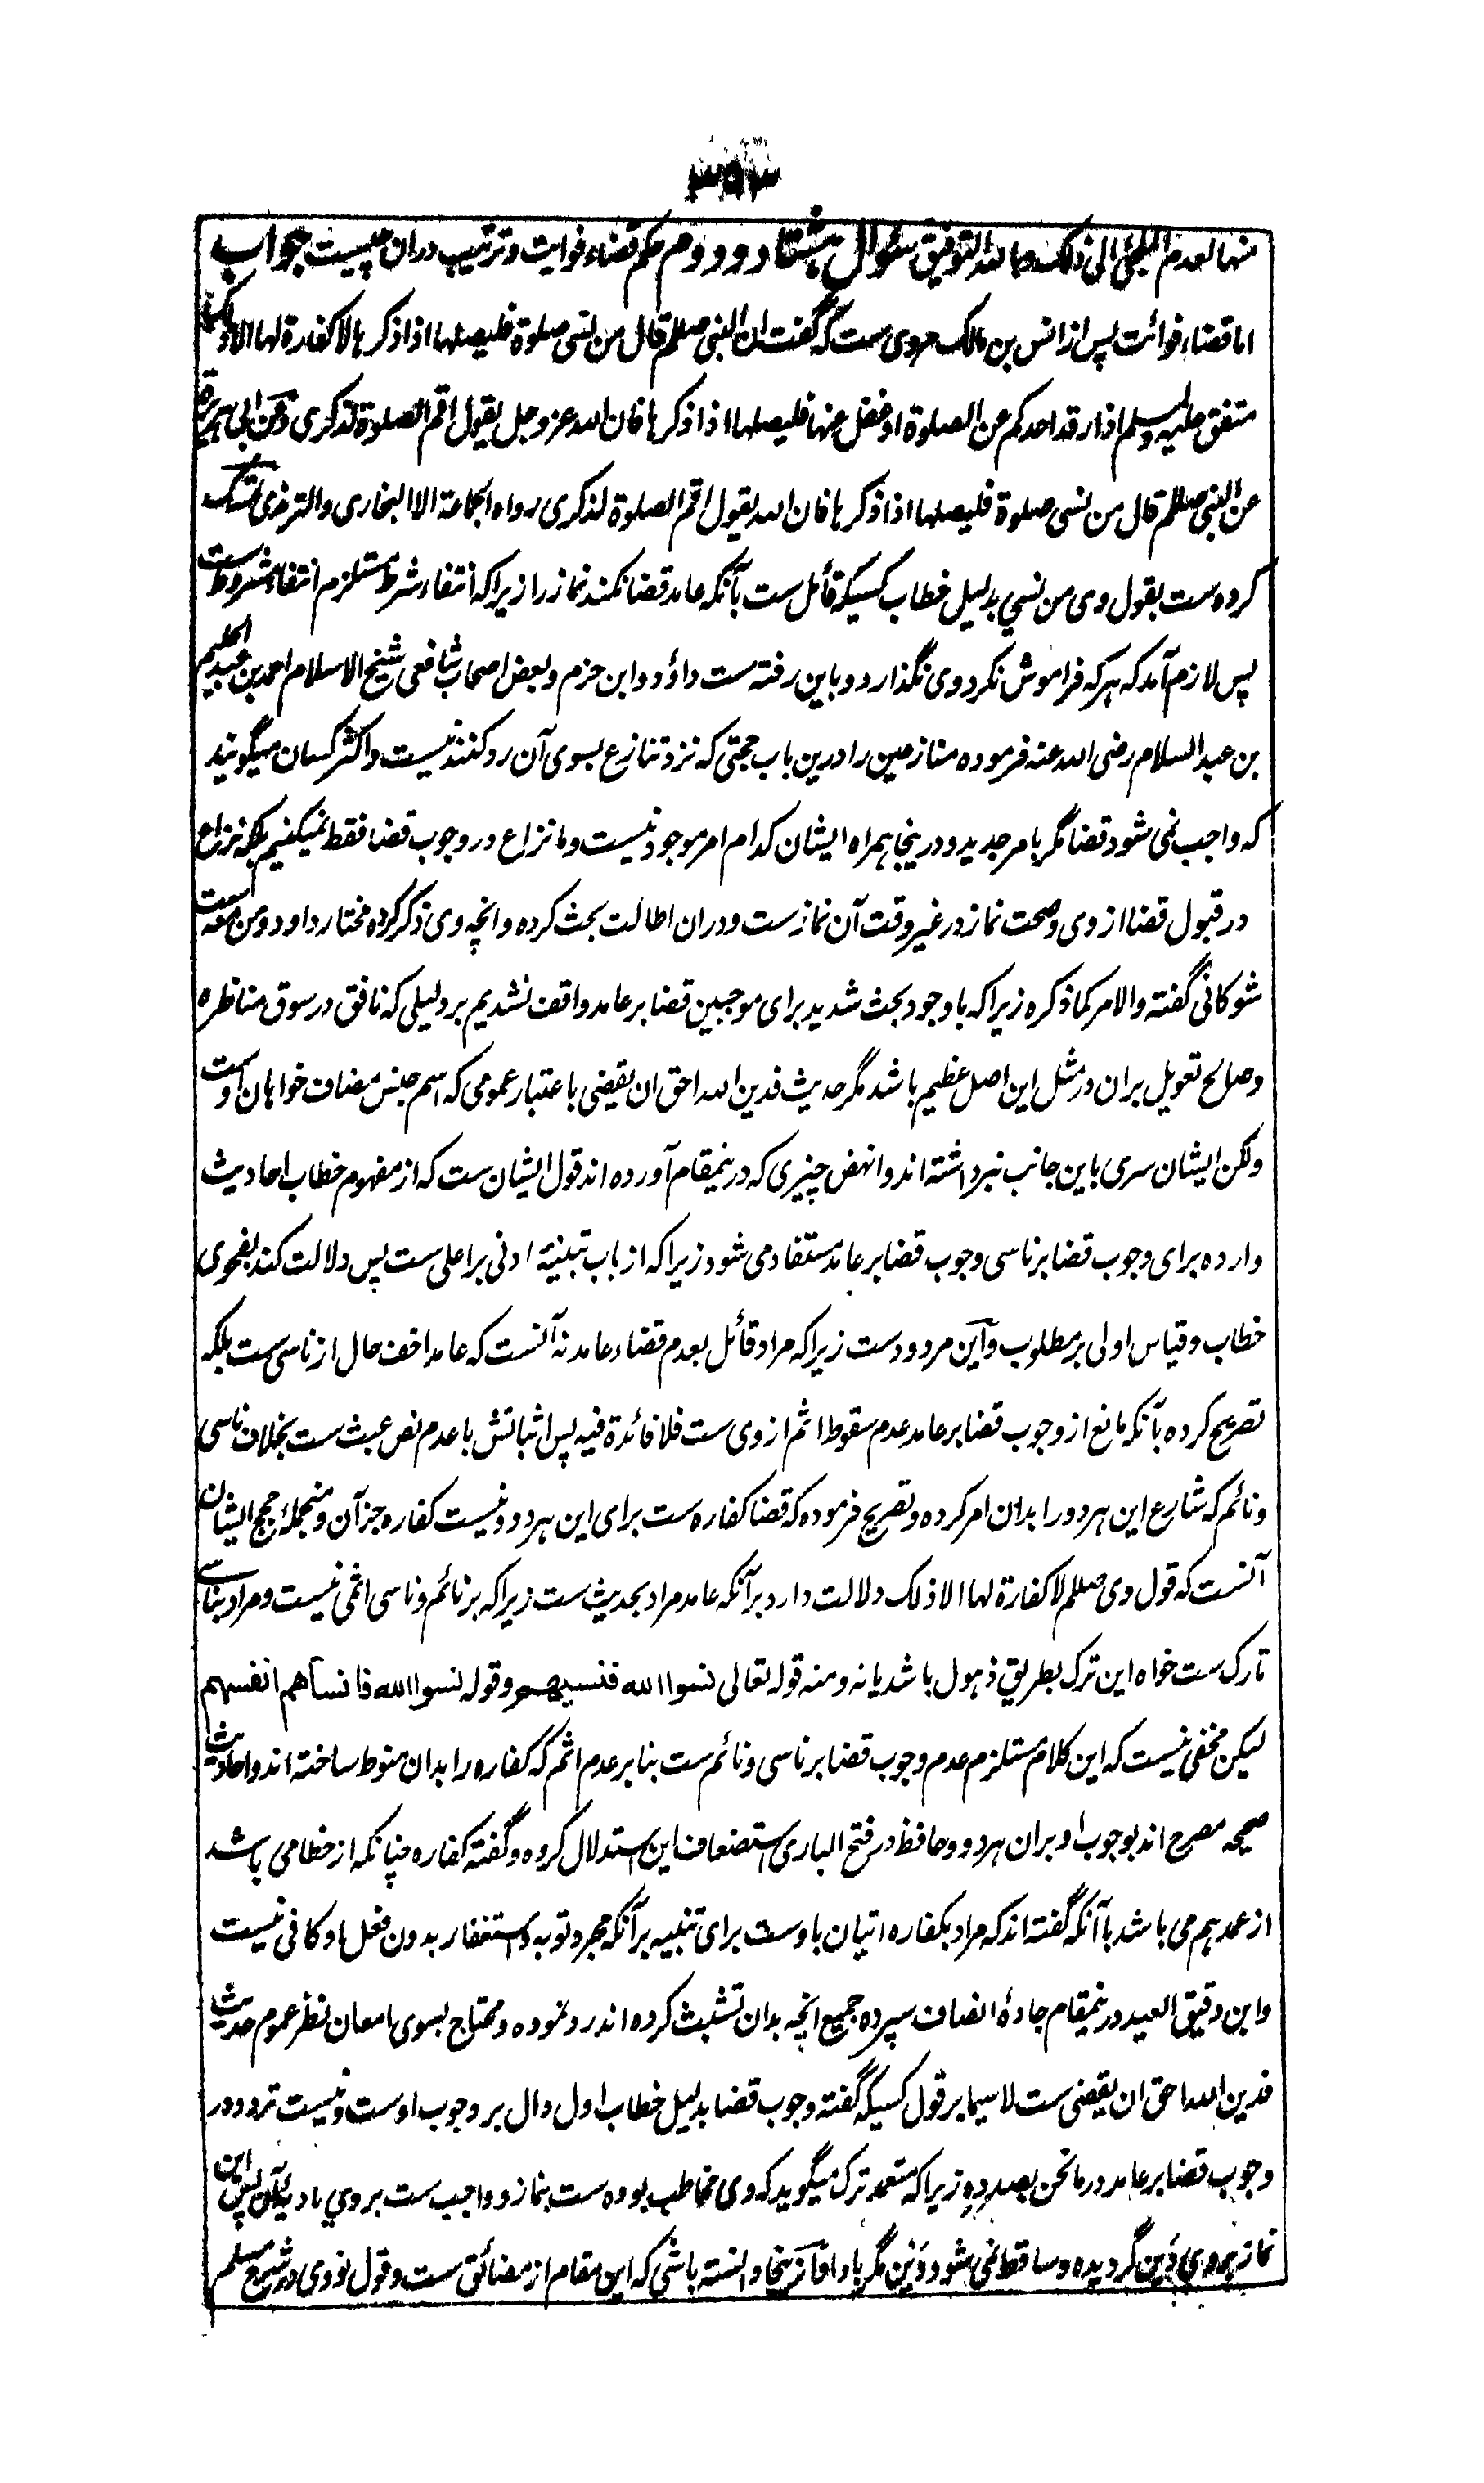 ۳۵۳
منها لعدم الملجئ الی ذلک و بالله التوفیق سؤال ہشتاد و دوم حکم قضاء فوایت و ترتیب دران چیست جواب
اما قضاء فوائت پس از انس بن مالک مروی ست که گفت ان النبی صللم قال من نسی صلوة فلیصلها اذا ذکرہا لا کفارة لها الا ذلک
متفق علیه و لمسلم اذا رقد احدکم عن الصلوة او غفل عنها فلیصلها اذا ذکرہا فان الله عز و جل یقول اقم الصلوة لذکری و عن ابی ہریرة
عن النبی صللم قال من نسی صلوة فلیصلها اذا ذکرہا فان الله یقول اقم الصلوة لذکری رواه الجماعة الا البخاری و الترمذی تمسک
کرده ست بقول وی من نسی بدلیل خطاب کسیکه قائل ست بآنکه عامد قضا نکند نماز را زیراکه انتفاء شرط مستلزم انتفاء مشروط ست
پس لازم آمد که ہر که فراموش نکرد وی نگذارد و باین رفته ست داؤد و ابن حزم و بعض اصحاب شافعی شیخ الاسلام احمد بن عبد الحلیم
بن عبد السلام رضی الله عنه فرموده منازعین را درین باب حجتی که نزد تنازع بسوی آن رد کنند نیست و اکثر کسان میگویند
که واجب نمی شود قضا مگر بامر جدید و درینجا ہمراه ایشان کدام امر موجود نیست و ما نزاع در وجوب قضا فقط نمیکنیم بلکه نزاع
در قبول قضا از وی و صحت نماز در غیر وقت آن نماز ست و دران اطالت بحث کرده و انچه وی ذکر کرده مختار داود و من معه ست
شوکانی گفته و الامر کما ذکره زیراکه با وجود بحث شدید برای موجبین قضا بر عامد واقف نشدیم بر دلیلی که نافق در سوق مناظره
و صالح تعویل بران در مثل این اصل عظیم باشد مگر حدیث فدین الله احق ان یقضی باعتبار عمومی که اسم جنس مضاف خواہان اوست
ولکن ایشان سری باین جانب نبرداشته اند و انهض چیزی که درینمقام آورده اند قول ایشان ست که از مفہوم خطاب احادیث
وارده برای وجوب قضا بر ناسی وجوب قضا بر عامد مستفاد می شود زیراکه از باب تنبیه ادنی بر اعلی ست پس دلالت کند بفحوی
خطاب و قیاس اولی بر مطلوب و این مردود ست زیراکه مراد قائل بعدم قضاء عامد نه آنست که عامد اخف حال از ناسی ست بلکه
تصریح کرده بآنکه مانع از وجوب قضا بر عامد عدم سقوط اثم از وی ست فلا فائدة فیه پس اثباتش با عدم نص عبث ست بخلاف ناسی
و نائم که شارع این ہر دو را بدان امر کرده و تصریح فرموده که قضا کفاره ست برای این ہر دو و نیست کفاره جز آن و منجملۀ حجج ایشان
آنست که قول وی صللم لا کفارة لها الا ذلک دلالت دارد بر آنکه عامد مراد بحدیث ست زیراکه بر نائم و ناسی اثمی نیست و مراد بناسی
تارک ست خواه این ترک بطریق ذہول باشد یا نه و منه قوله تعالی نسوا الله فنسیهم و قوله نسوا الله فانساهم انفسهم
لیکن مخفی نیست که این کلام مستلزم عدم وجوب قضا بر ناسی و نائم ست بنابر عدم اثم که کفاره را بدان منوط ساخته اند و احادیث
صحیحه مصرح اند بوجوب او بران ہر دو و حافظ در فتح الباری استضعاف این استدلال کرده و گفته کفاره چنانکه از خطا می باشد
از عمد ہم می باشد با آنکه گفته اند که مراد بکفاره اتیان باوست برای تنبیه بر آنکه مجرد توبه و استغفار بدون فعل او کافی نیست
و ابن دقیق العید درینمقام جادۀ انصاف سپرده جمیع انچه بدان تشبث کرده اند رد نموده و محتاج بسوی امعان نظر عموم حدیث
فدین الله احق ان یقضی ست لاسیما بر قول کسیکه گفته وجوب قضا بدلیل خطاب اول دال بر وجوب اوست و نیست تردد در
وجوب قضا بر عامد در ما نحن بصدده زیراکه متعمد ترک میگوید که وی مخاطب بوده ست بنماز و واجب ست بروی تادیۀ آن پس این
نماز بروی دین گردیده و ساقط نمی شود دین مگر بادا از ینجا دانسته باشی که این مقام از مضائق ست و قول نووی در شرح مسلم